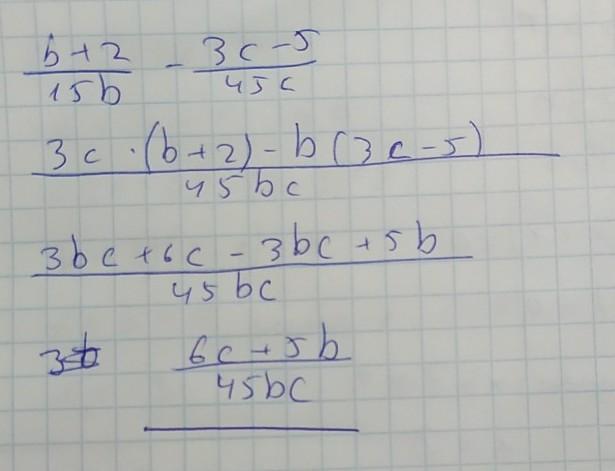 b+2/15b - 3c-5/45c
3c·(b+2)-b(3c-5)/45bc
3bc+6c-3bc+5b/45bc
6c+5b/45bc